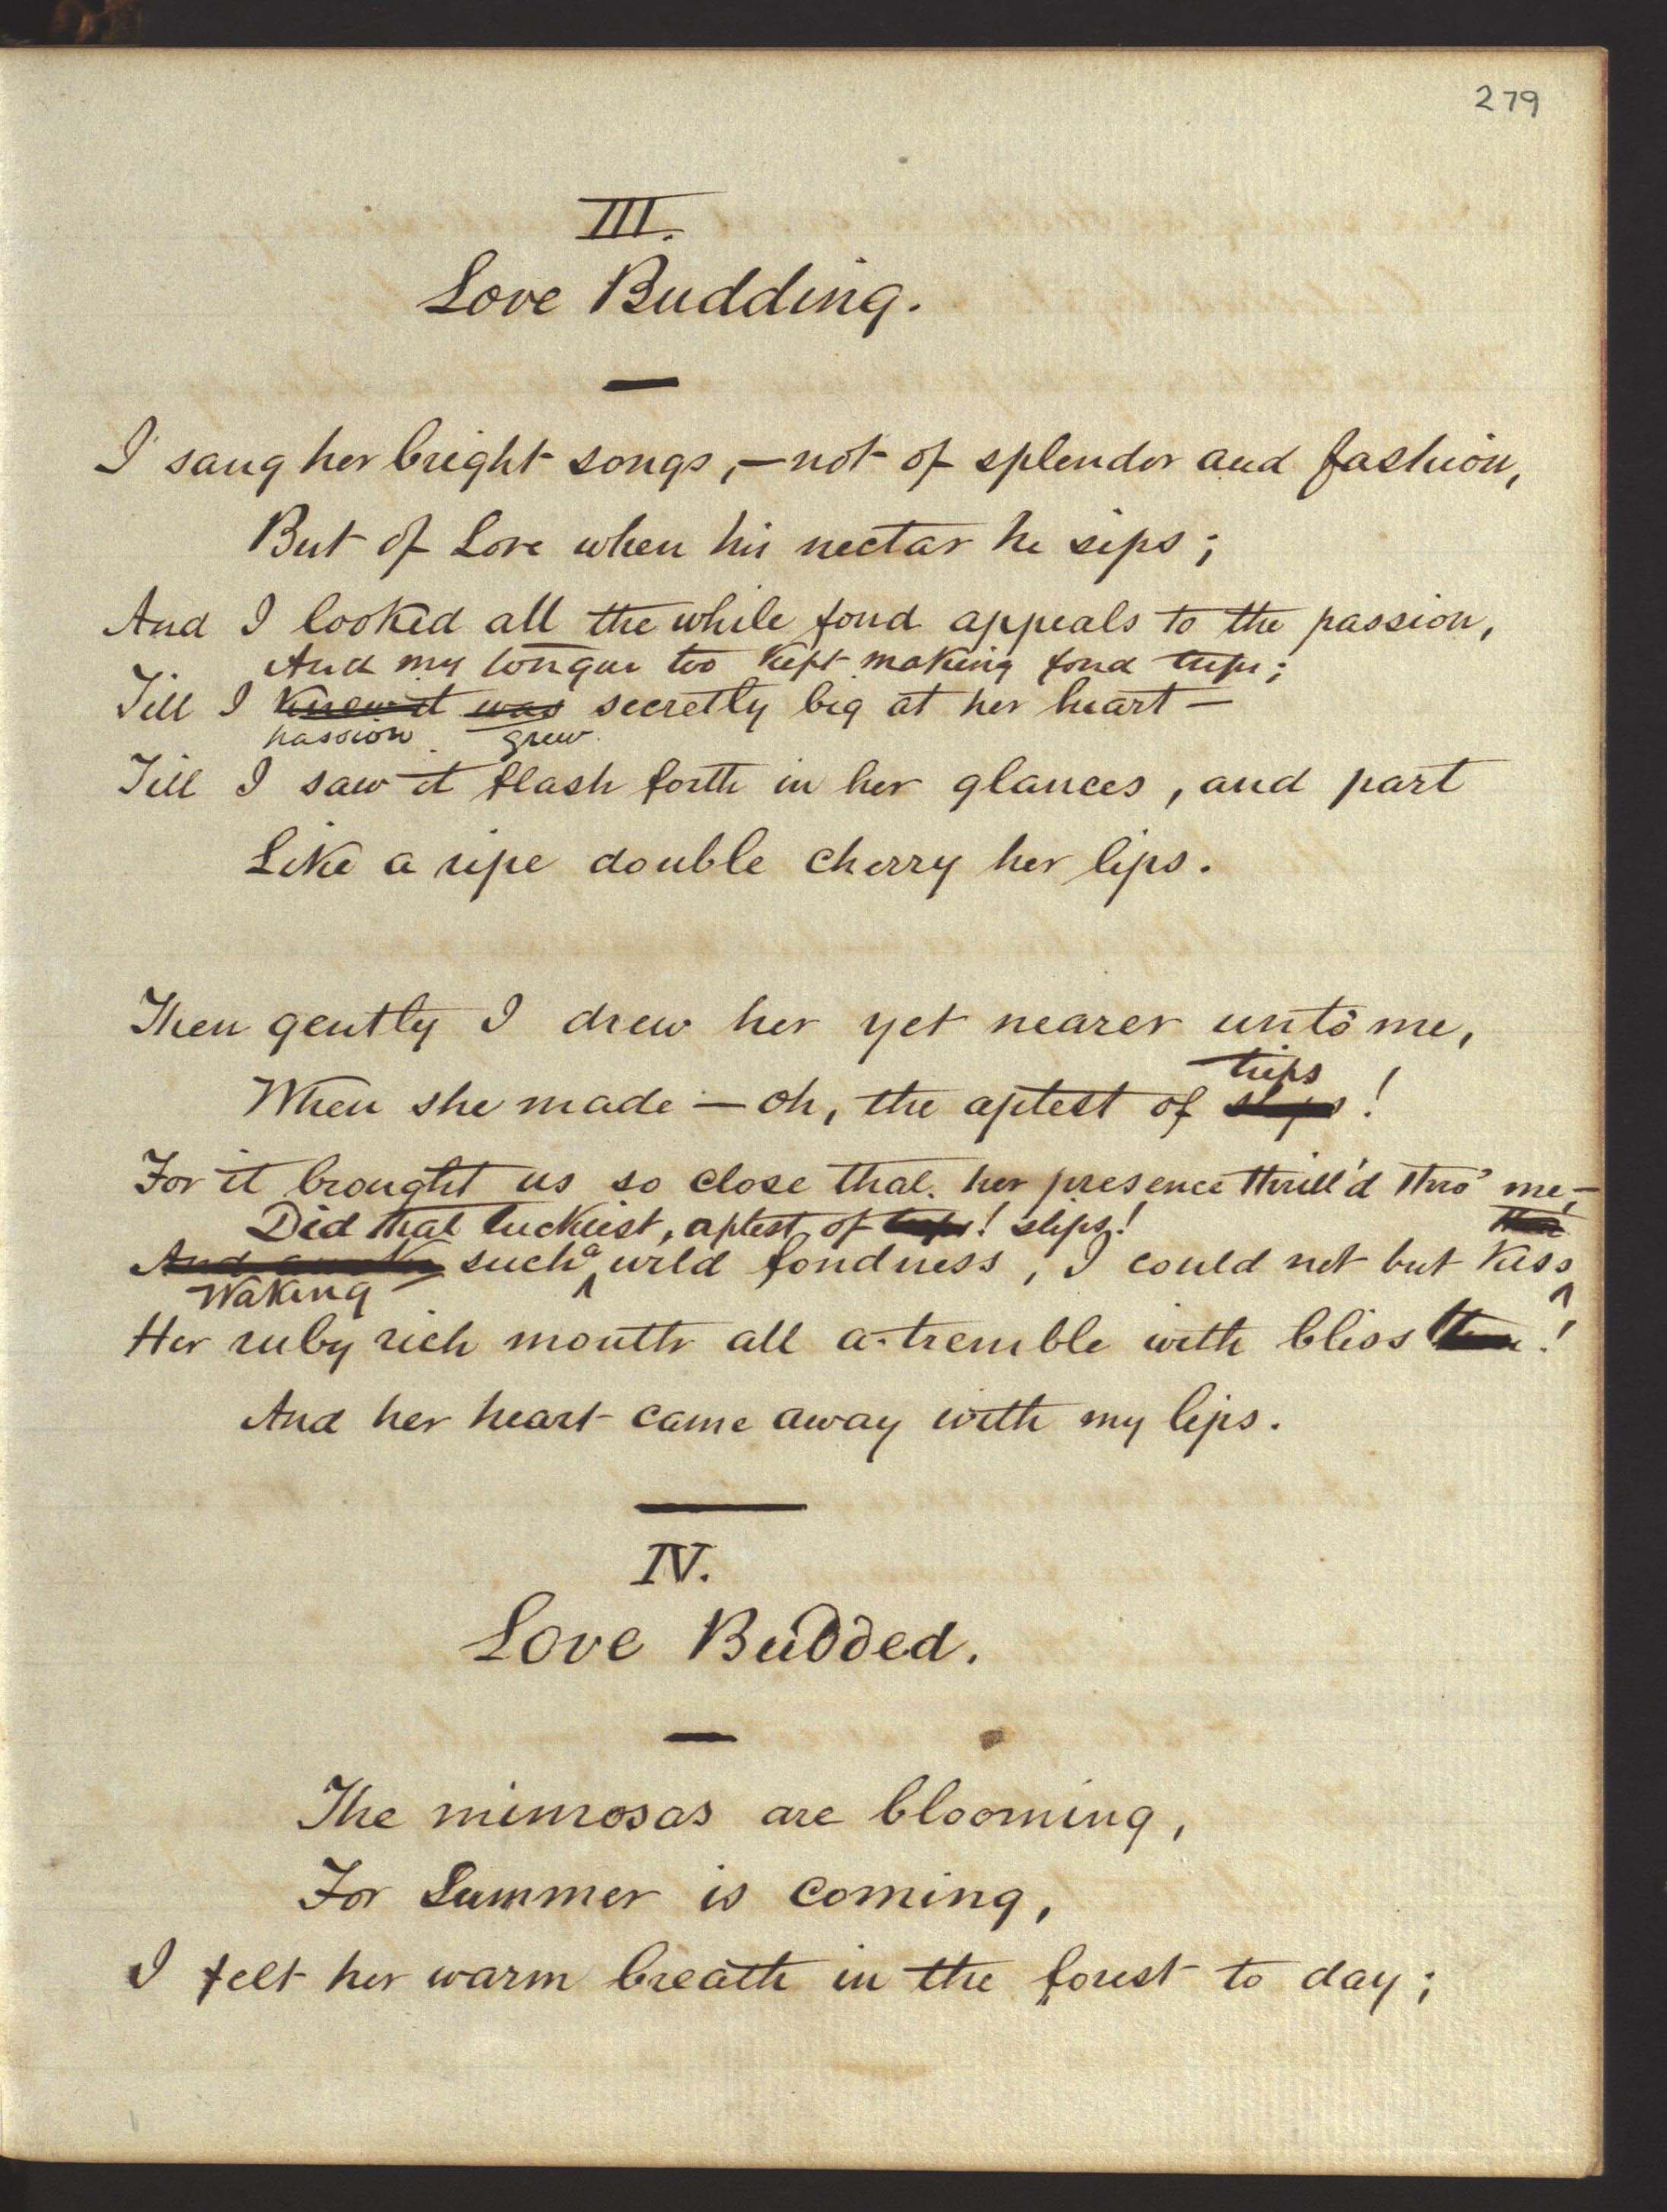 279
III.
Love Budding.
I sang her bright songs,—not of splendor and fashion,
But of Love when his nectar he sips;
And I looked all the while fond appeals to the passion,
And my tongue too kept making fond trips;
Till I knew it was secretly big at her heart—
passion grew
Till I saw it flash forth in her glances, and part
Like a ripe double cherry her lips.
Then gently I drew her yet nearer unto me,
trips
When she made—oh, the aptest of slips!
For it brought us so close that her presence thrill'd thro' me,—
Did that luckiest, aptest of trips! slips!
And such a wild fondness, I could not but kiss
Waking
Her ruby rich mouth all a-tremble with bliss then!
And her heart came away with my lips.
IV.
Love Budded.
The mimosas are blooming,
For Summer is coming,
I felt her warm breath in the forest to day;